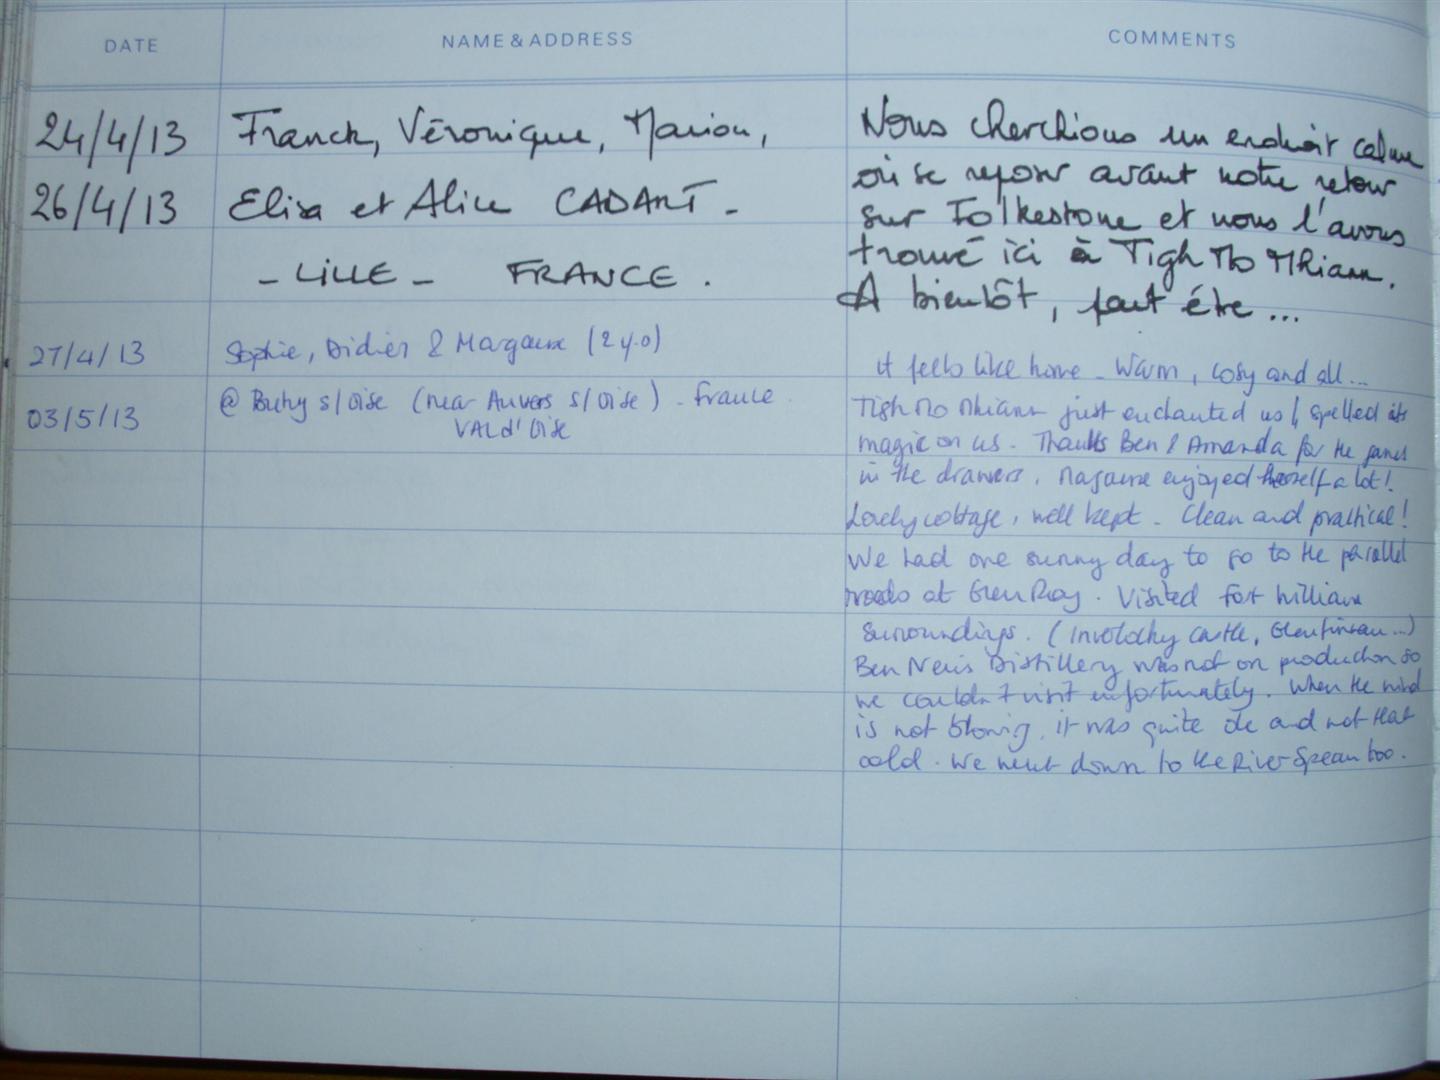 DATE NAME & ADDRESS COMMENTS
24/4/13 Franck, Véronique, Marion,
26/4/13 Elisa et Alice CADART -
- LILLE - FRANCE .
Nous cherchions un endroit calme
où se reposer avant notre retour
sur Folkestone et nous l'avons
trouvé ici à Tigh Mo Mhiann.
A bientôt, peut être ...
27/4/13 Sophie, Didier & Margaux (2 y.o)
03/5/13 @ Butry s/Oise (near Auvers s/Oise) - France.
VAL d'Oise
it feels like home - Warm, cosy and all...
Tigh Mo Mhiann just enchanted us & spelled its
magic on us. Thanks Ben & Amanda for the games
in the drawers, Margaux enjoyed herself a lot!
Lovely cottage, well kept - Clean and practical!
We had one sunny day to go to the parallel
roads at Glen Roy. Visited Fort William
surroundings. (Inverlochy castle, Glenfinnan...)
Ben Nevis Distillery was not on production so
we couldn't visit unfortunately. When the wind
is not blowing, it was quite ok and not that
cold. We went down to the River Spean too.